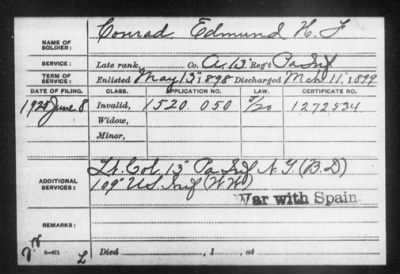 Conrad, Edmund H. F
NAME OF SOLDIER:
SERVICE: Late rank, Co. A, 13" Reg't Pa Inf
TERM OF SERVICE: Enlisted May 13", 1898 Discharged Mch 11", 1899
DATE OF FILING. CLASS. APPLICATION NO. LAW. CERTIFICATE NO.
1925 June 8 Invalid, 1520 050 5/20 1272534
Widow,
Minor,
ADDITIONAL SERVICES: Lt. Col. 13" Pa Inf N. G. (B.D)
109" U.S. Inf (WW)
War with Spain.
REMARKS:
Died , 1 , at